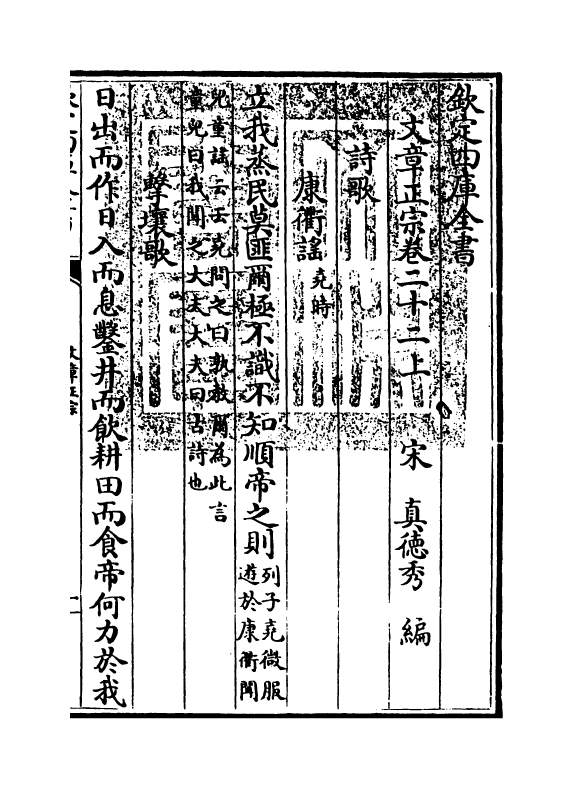 欽定四庫全書
文章正宗卷二十二上　宋　真徳秀　編
詩歌
康衢謡堯時
立我蒸民莫匪爾極不識不知順帝之則列子堯微服
遊於康衢聞
兒童謡云云堯問之曰孰教爾為此言
童兒曰我聞之大夫大夫曰古詩也
擊壤歌
日出而作日入而息鑿井而飲耕田而食帝何力於我
文章正宗